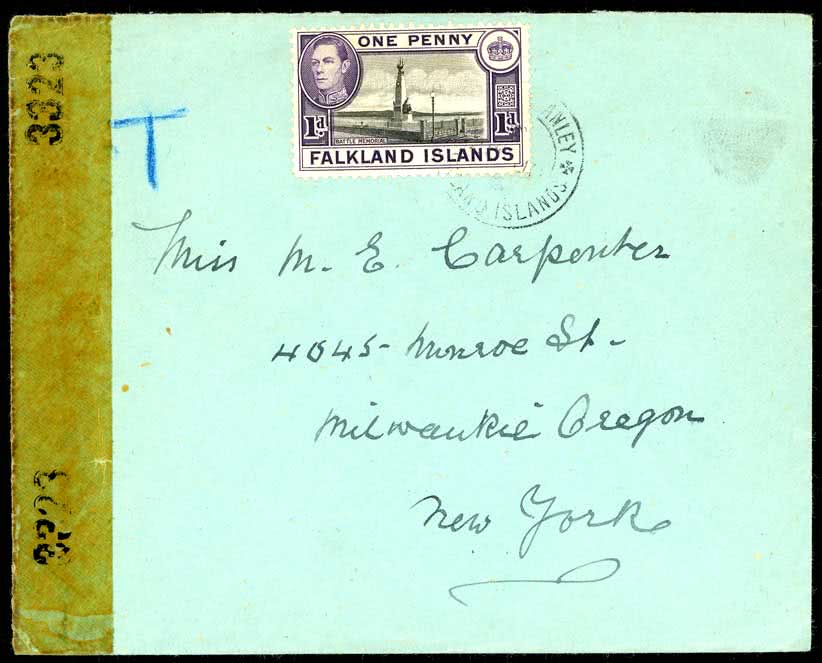 3323
T
ONE PENNY
1d 1d
BATTLE MEMORIAL
FALKLAND ISLANDS
ANLEY
ISLANDS
Miss M. E. Carpenter
4545 Monroe St.
Milwaukie Oregon
New York